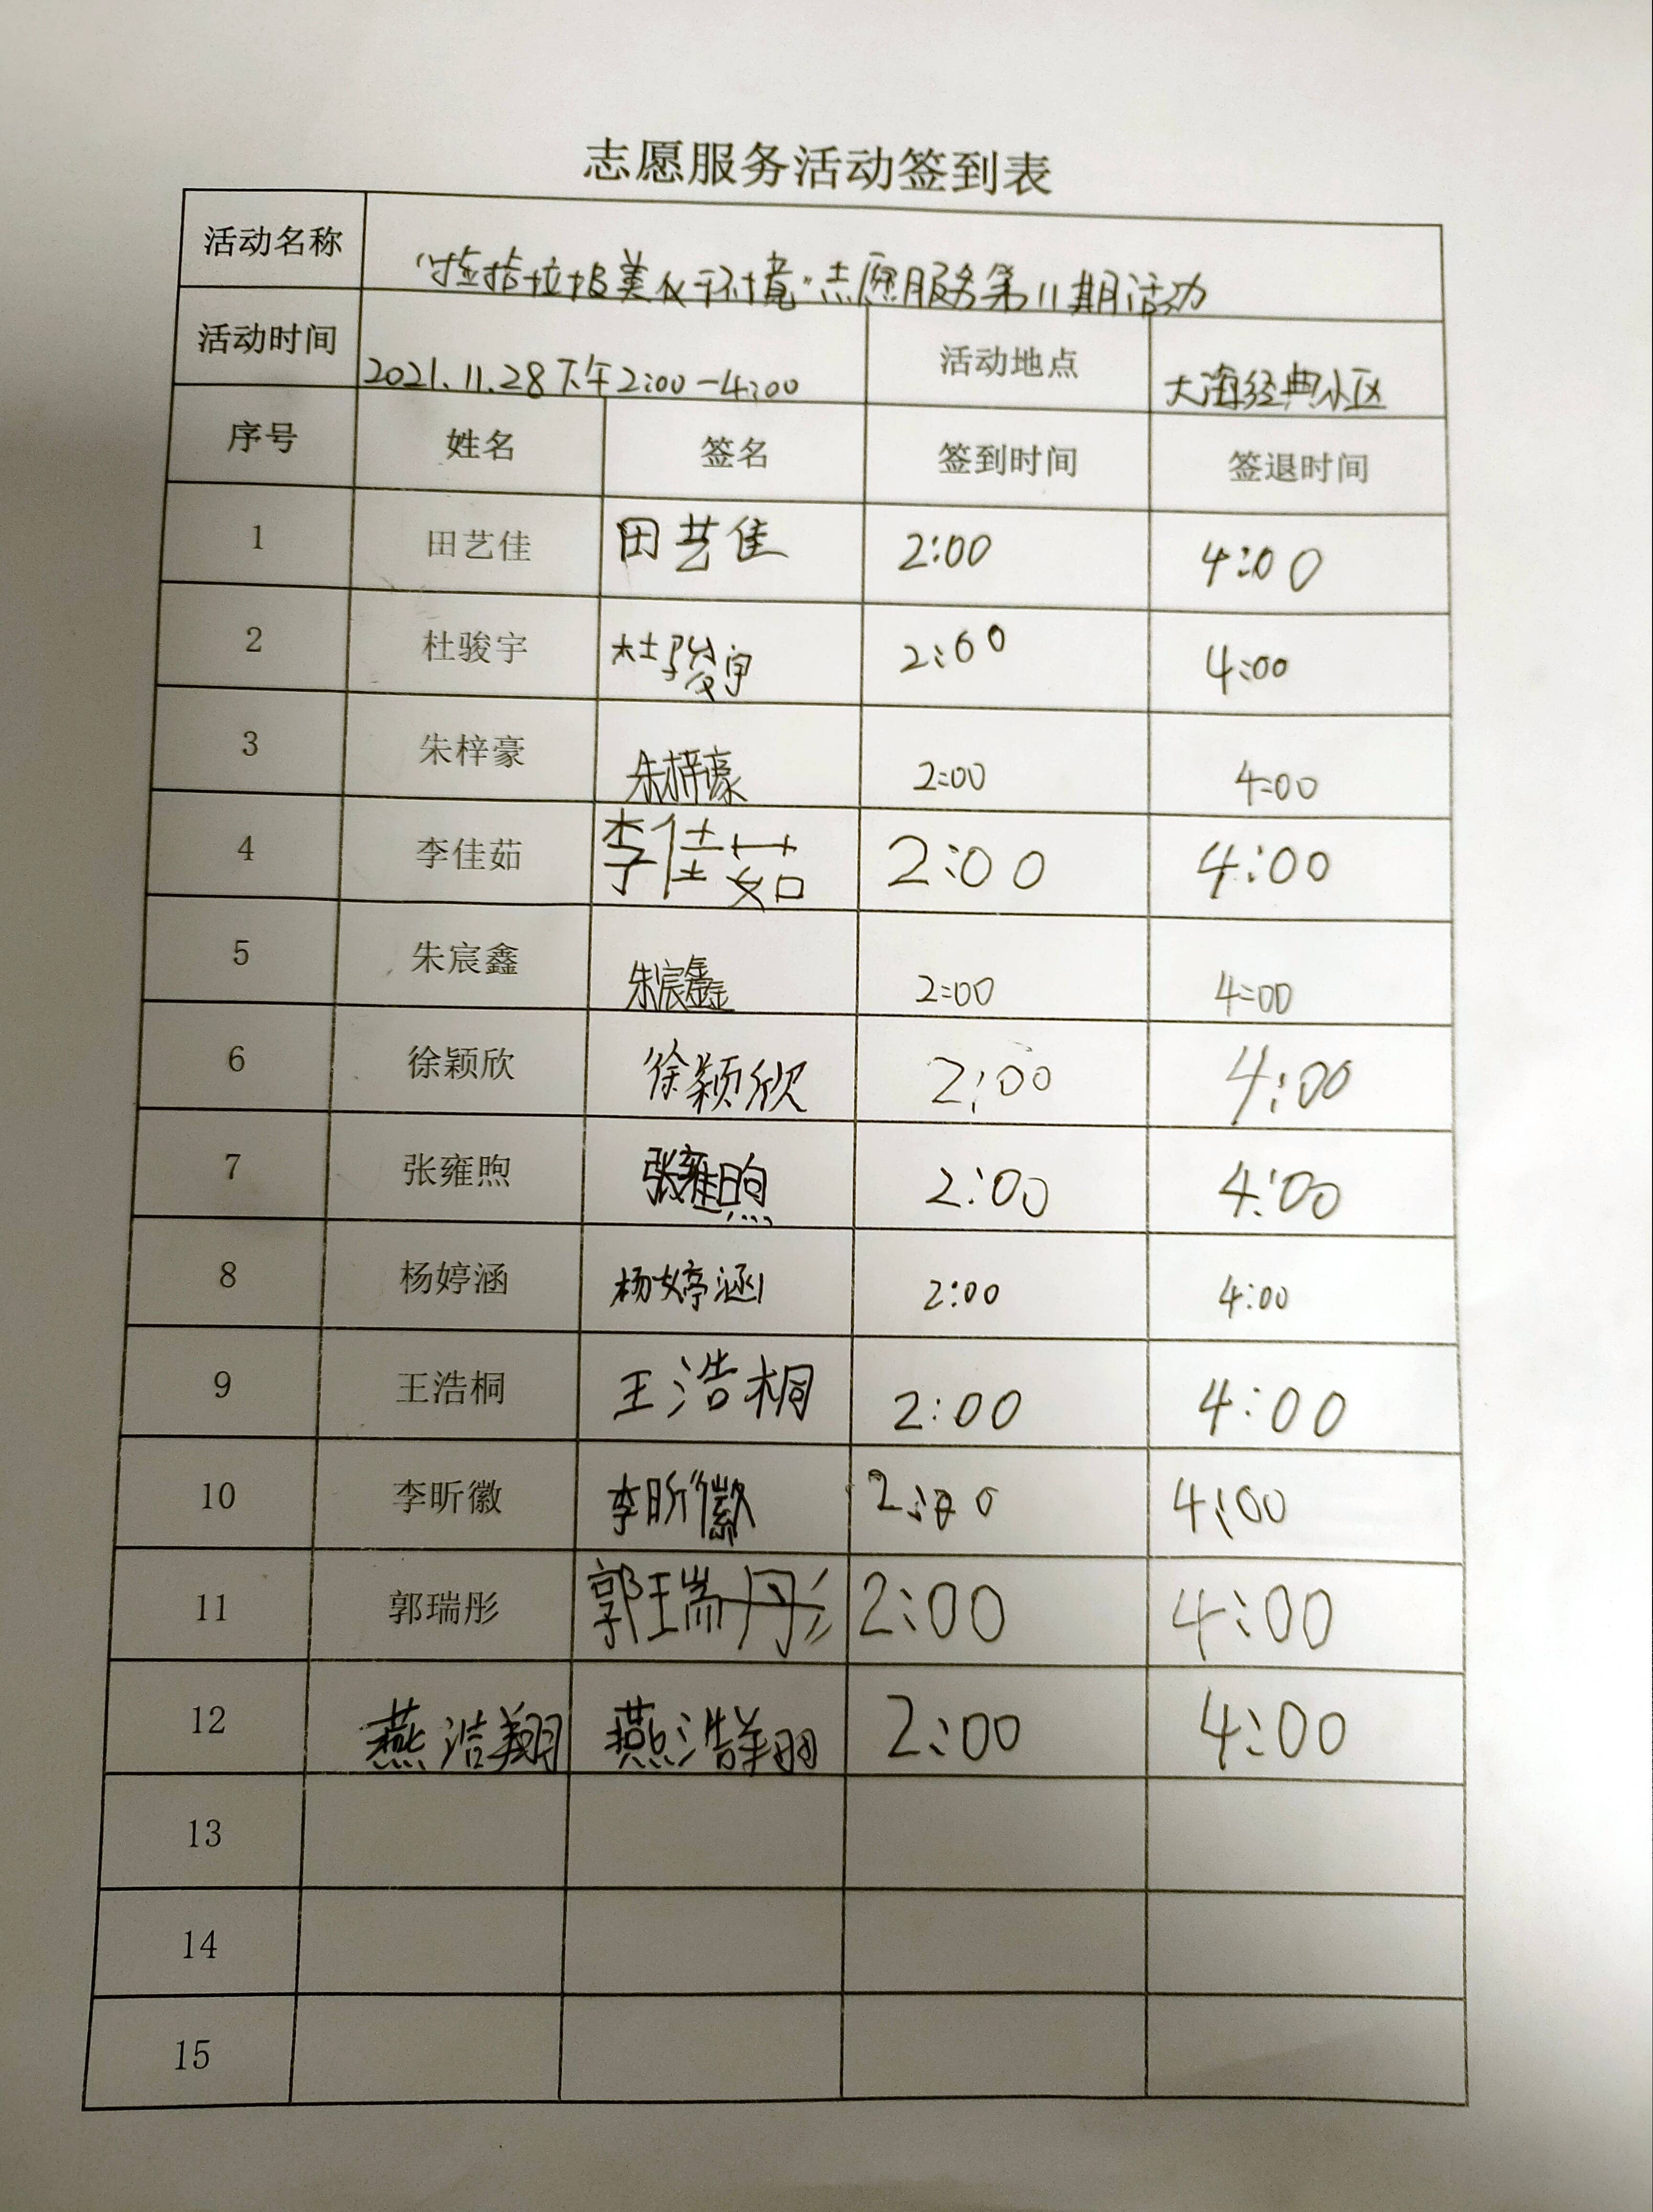 志愿服务活动签到表
活动名称 "捡拾垃圾美化环境"志愿服务第11期活动
活动时间 2021.11.28下午2:00-4:00 活动地点 大海经典小区
序号 姓名 签名 签到时间 签退时间
1 田艺佳 田艺佳 2:00 4:00
2 杜骏宇 杜骏宇 2:00 4:00
3 朱梓豪 朱梓豪 2:00 4:00
4 李佳茹 李佳茹 2:00 4:00
5 朱宸鑫 朱宸鑫 2:00 4:00
6 徐颖欣 徐颖欣 2:00 4:00
7 张雍煦 张雍煦 2:00 4:00
8 杨婷涵 杨婷涵 2:00 4:00
9 王浩桐 王浩桐 2:00 4:00
10 李昕徽 李昕徽 2:00 4:00
11 郭瑞彤 郭瑞彤 2:00 4:00
12 燕浩翔 燕浩翔 2:00 4:00
13
14
15